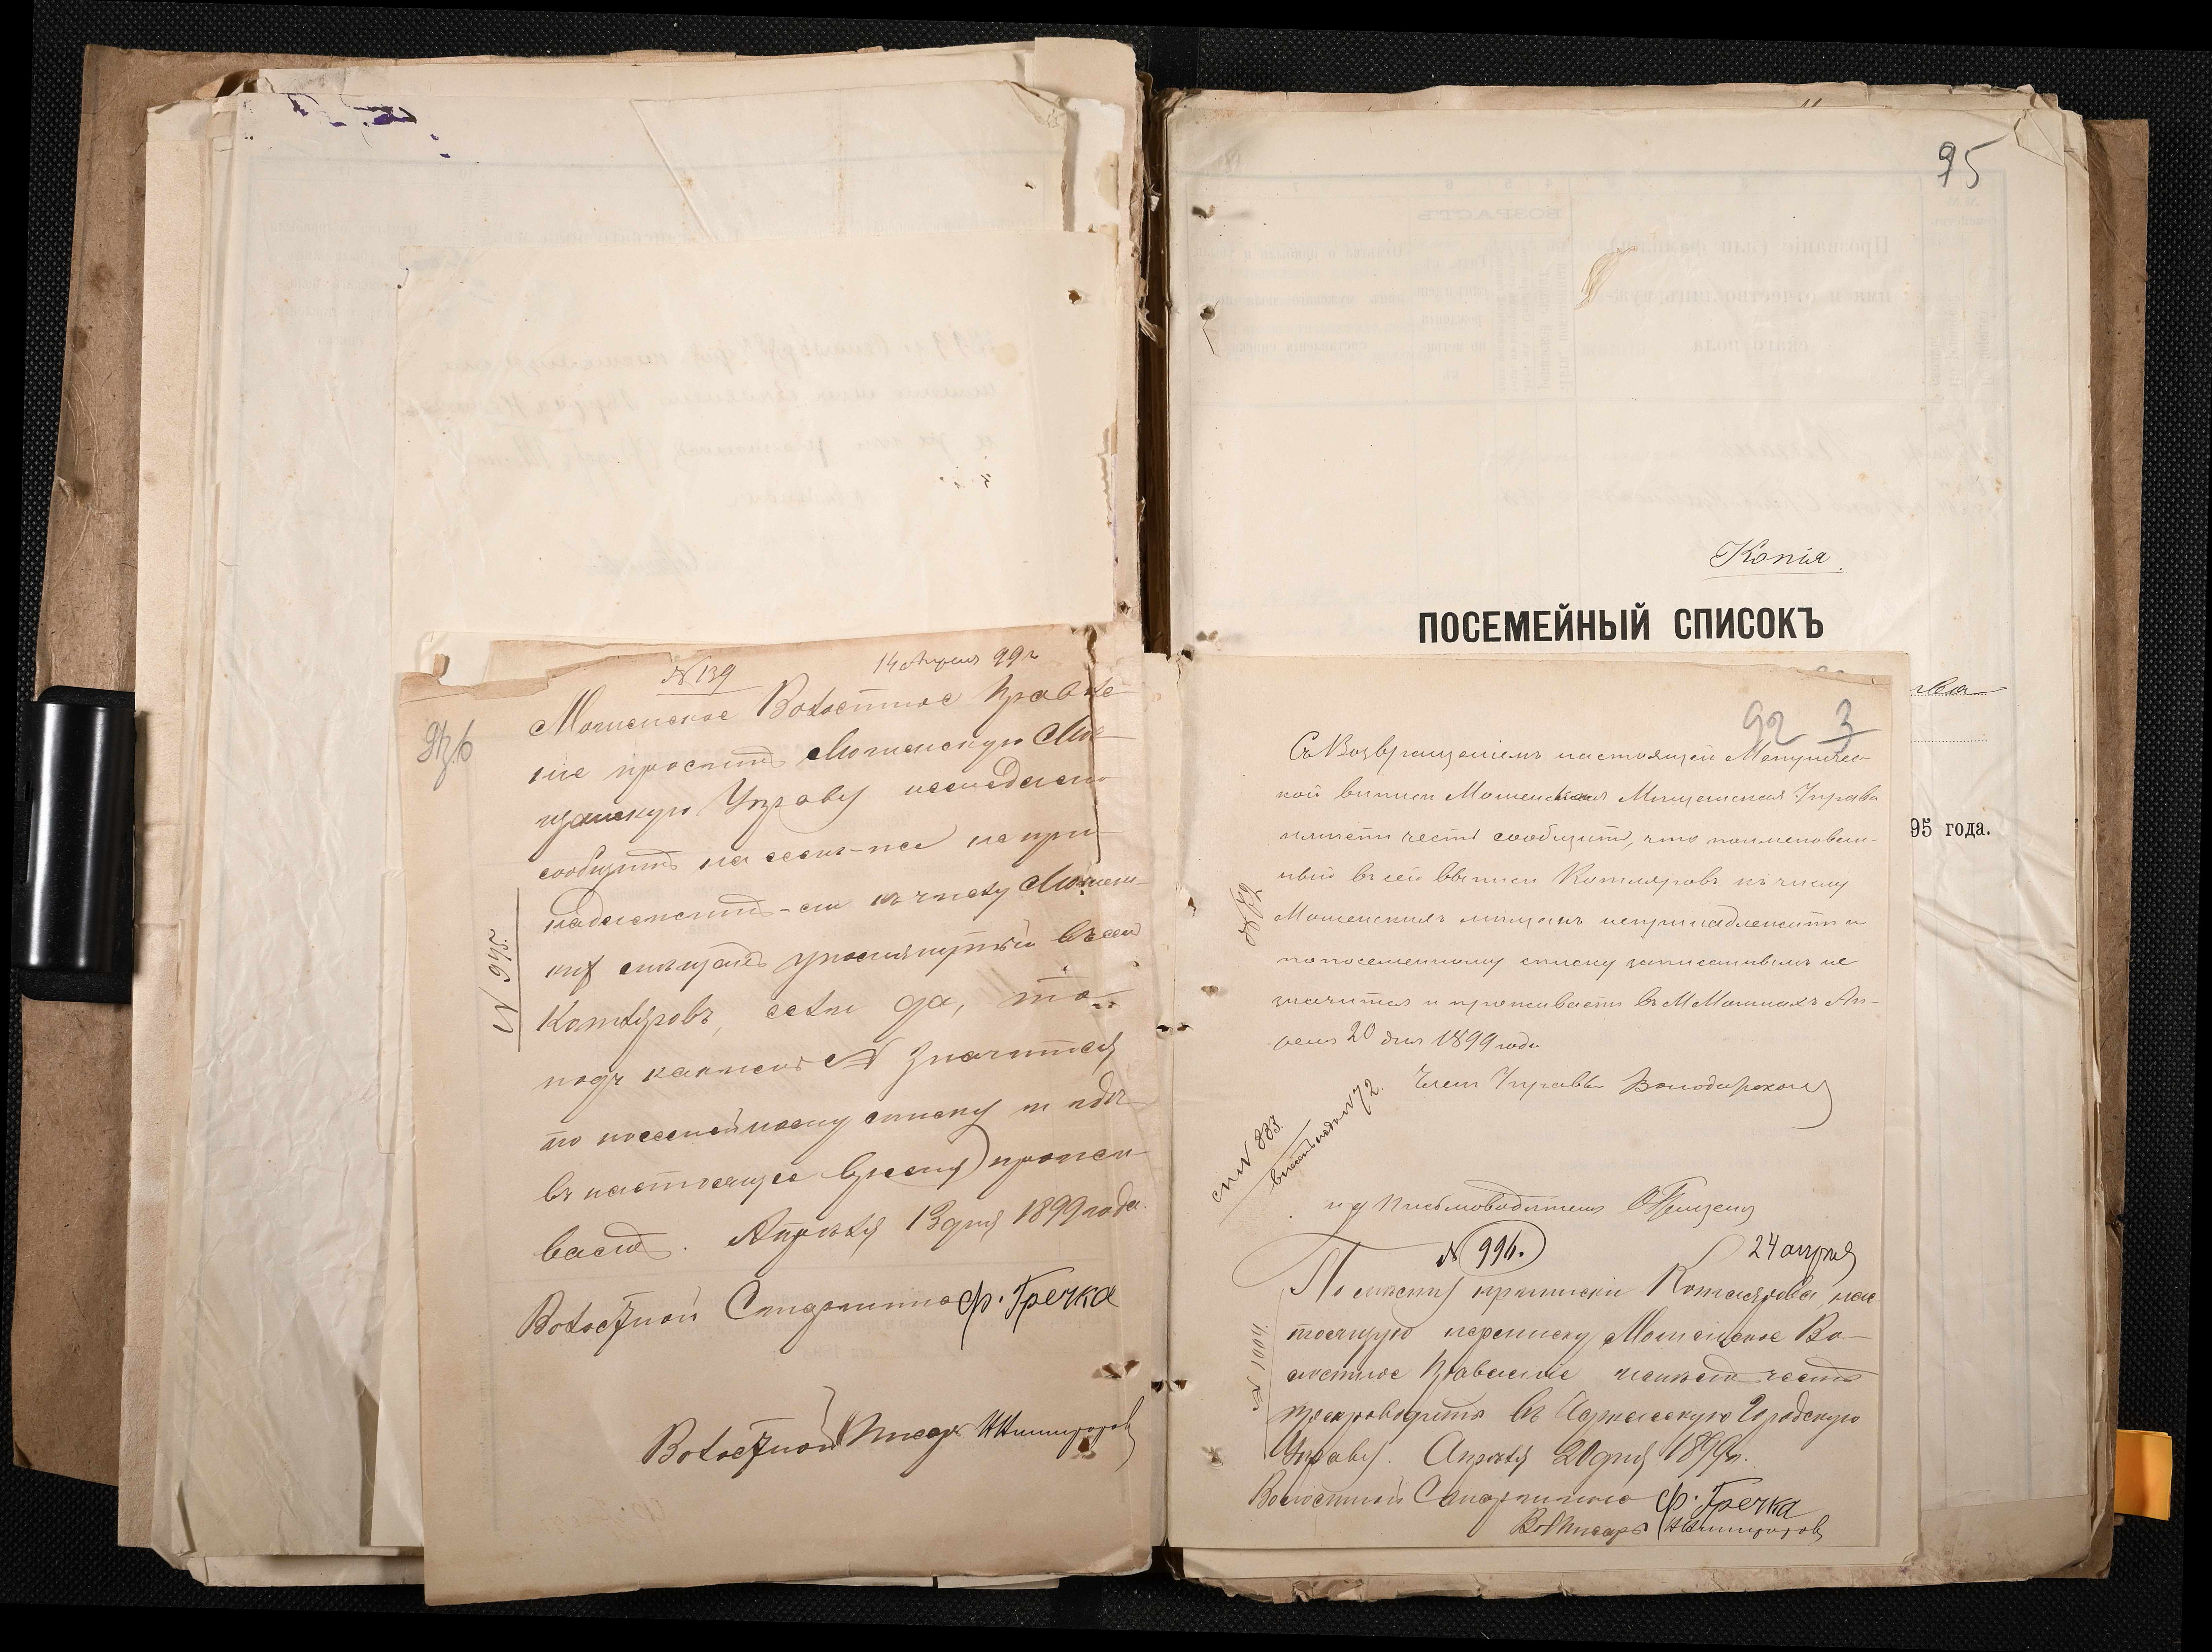 № 139 14 Апреля 99 г
Мошенское Волостное Правле-
ніе проситъ Мошенскую Мѣ-
щанскую Управу
сообщитъ на семъ-же не при-
надлежитъ-ли къ числу Мошен-
скихъ мѣщанъ упомянутый въ сей
Котляровъ, если да, то
подъ какимъ № значится
по посемейному списку и гдѣ
въ настоящее время прожи-
ваетъ. Апрѣля 13 дня 1899 года.
Волостной Старшина Ф. Гречка
Волостной Писарь
N 945.
95
Копія.
ПОСЕМЕЙНЫЙ СПИСОКЪ
95 года.
92 3
Съ возвращеніемъ настоящей
кой выписи Мошенская Мѣщанская Управа
имѣетъ честь сообщить, что поименован-
ный въ сей выписи Котляровъ къ числу
Мошенскихъ мѣщанъ непринадлежитъ и
попосемейному списку записаннымъ не
значится и проживаетъ въ М Мошнахъ Ап-
реля 20 дня 1899 года
Членъ Управы
сп N 883.
N 72.
и д Письмоводителя
№ 996. 24 апреля
По мѣсту приписки Котлярова, нас-
тоящую переписку Мошенское Во-
лостное Правленіе имѣетъ честь
препроводить въ Черкасскую Городскую
Управу. Апрѣля 20 дня 1899 г.
Волостной Старшина Ф. Гречка
Вол Писарь
№ 1004